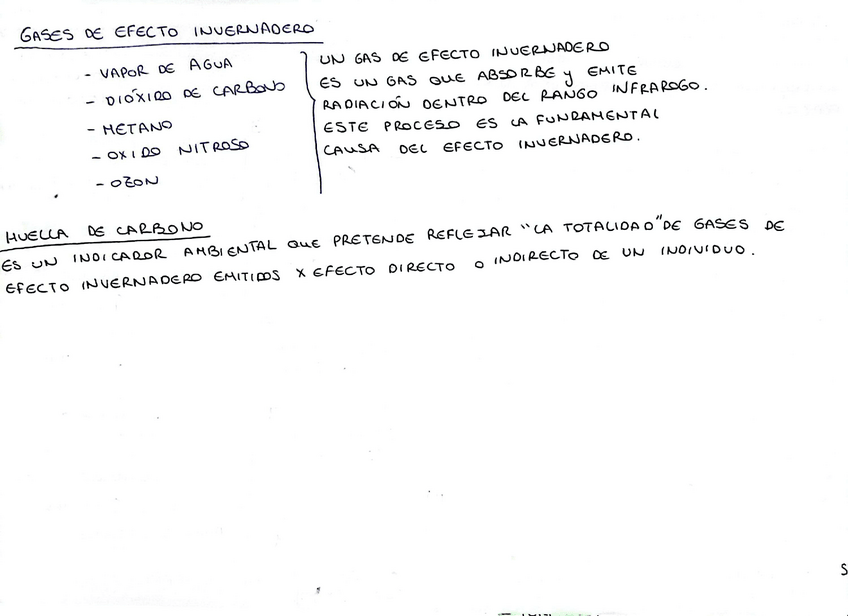 GASES DE EFECTO INVERNADERO
- VAPOR DE AGUA
- DIÓXIDO DE CARBONO
- METANO
- OXIDO NITROSO
- OZON
UN GAS DE EFECTO INVERNADERO
ES UN GAS QUE ABSORBE y EMITE
RADIACIÓN DENTRO DEL RANGO INFRAROGO.
ESTE PROCESO ES LA FUNDAMENTAL
CAUSA DEL EFECTO INVERNADERO.
HUELLA DE CARBONO
ES UN INDICADOR AMBIENTAL QUE PRETENDE REFLEJAR "LA TOTALIDAD" DE GASES DE
EFECTO INVERNADERO EMITIDOS X EFECTO DIRECTO O INDIRECTO DE UN INDIVIDUO.
S